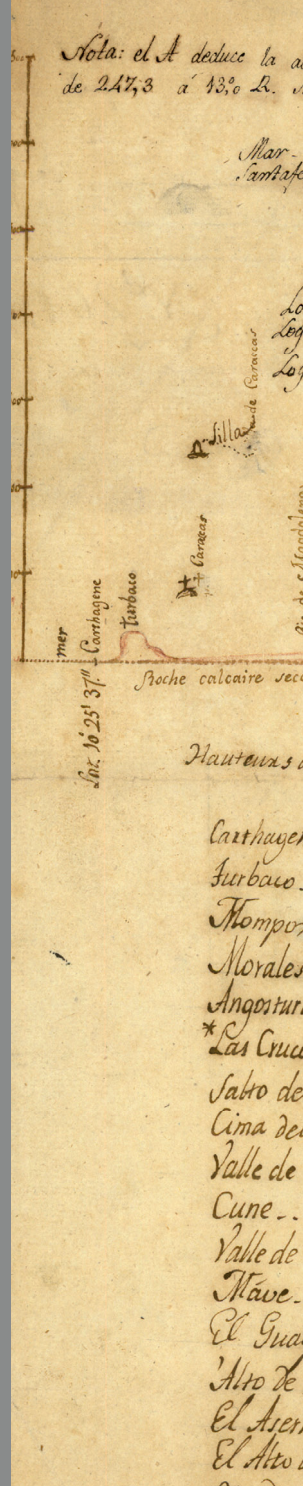 Nota: el A deduce la
de 247,3 á 13,° R.
Mar
Santafe
Silla de Caraccas
Caracas
mer
Carthagene
turbaco
Roche calcaire
Lat. 10° 25' 37."
Hauteurs
Carthagen
Turbaco
Mompox
Morales
Angostura
*Las Cruce
Salto de
Cima del
Valle de
Cune
Valle de
Máve
El Gua
Alto de
El Aser
El Alto